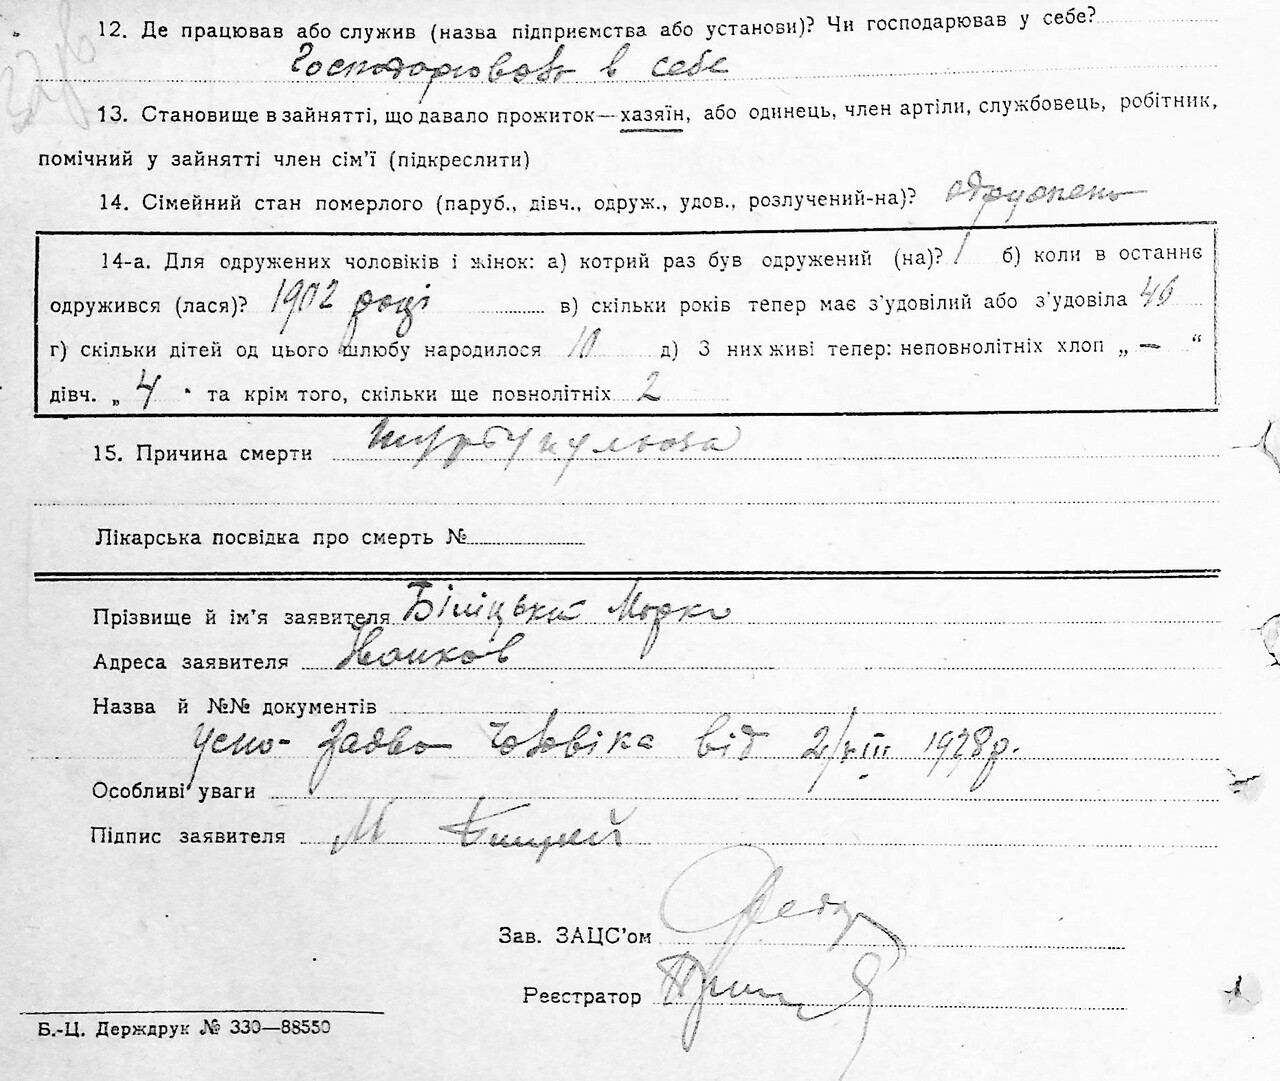 12. Де працював або служив (назва підприємства або установи)? Чи господарював у себе?
Господарював в себе
13. Становище в зайнятті, що давало прожиток—хазяїн, або одинець, член артіли, службовець, робітник,
помічний у зайнятті член сім’ї (підкреслити)
14. Сімейний стан померлого (паруб., дівч., одруж., удов., розлучений-на)?
14-а. Для одружених чоловіків і жінок: а) котрий раз був одружений (на)? 1 б) коли в останнє
одружився (лася)? 1902 році в) скільки років тепер має з’удовілий або з’удовіла 46
г) скільки дітей од цього шлюбу народилося 10 д) З них живі тепер: неповнолітніх хлоп „ — “
дівч. „ 4 " та крім того, скільки ще повнолітніх 2
15. Причина смерти
Лікарська посвідка про смерть №
Прізвище й ім’я заявителя Біліцький Марко
Адреса заявителя
Назва й №№ документів
Усно- чоловіка від 2/VIII 1928р.
Особливі уваги
Підпис заявителя М
Зав. ЗАЦС’ом
Реєстратор
Б.-Ц. Держдрук № 330—88550